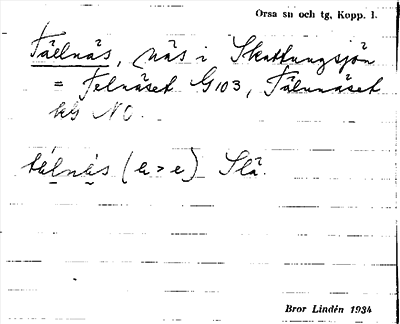 Orsa sn och tg, Kopp. l.
Täelnäs, näs i Skattungsjön
= Telnäset G103, Tälnnäset
NO.
tälnäs (ä > e) Slä.
Bror Lindén 1934